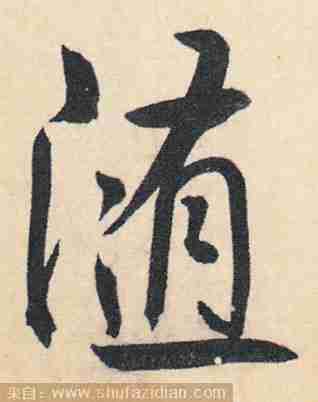 随
来自：www.shufazidian.com